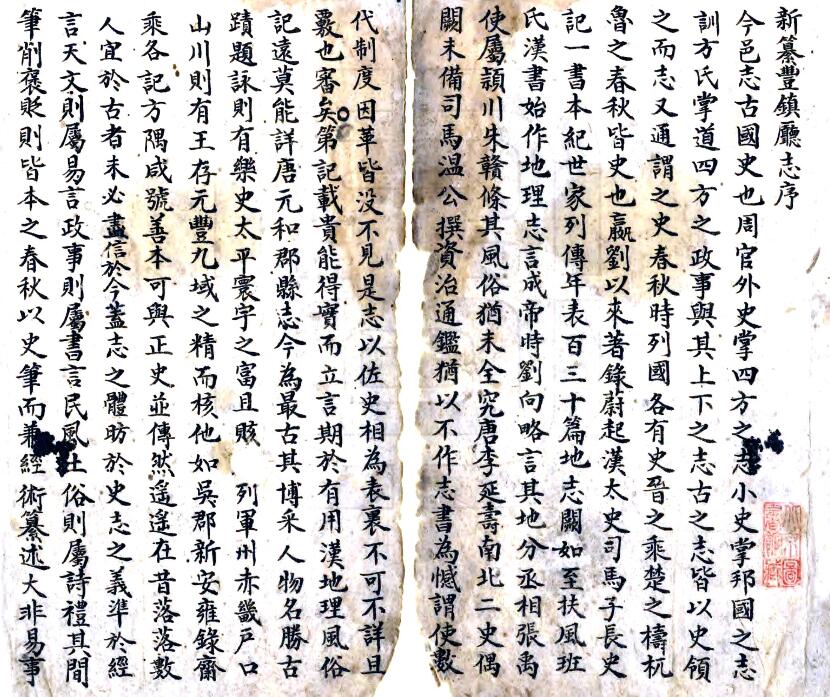 新纂豐鎮廳志序
今邑志古國史也周官外史掌四方之志小史掌邦國之志
訓方氏掌道四方之政事與其上下之志古之志皆以史領
之而志又通謂之史春秋時列國各有史晉之乘楚之檮杌
魯之春秋皆史也嬴劉以來著錄蔚起漢太史司馬子長史
記一書本紀世家列傳年表百三十篇地志闕如至扶風班
氏漢書始作地理志言成帝時劉向略言其地分丞相張禹
使屬潁川朱贛條其風俗猶未全究唐李延壽南北二史偶
闕未備司馬溫公撰資治通鑑猶以不作志書為憾謂使數
代制度因革皆没不見是志以佐史相為表裏不可不詳且
覈也審矣第記載貴能得實而立言期於有用漢地理風俗
記遠莫能詳唐元和郡縣志今為最古其博采人物名勝古
蹟題詠則有樂史太平寰宇之富且賅 列軍州赤畿戸口
山川則有王存元豐九域之精而核他如吳郡新安雍錄齊
乘各記方隅咸號善本可與正史並傳然遥遥在昔落落數
人宜於古者未必盡信於今蓋志之體昉於史志之義準於經
言天文則屬易言政事則屬書言民風土俗則屬詩禮其間
筆削褒貶則皆本之春秋以史筆而兼經術纂述大非易事